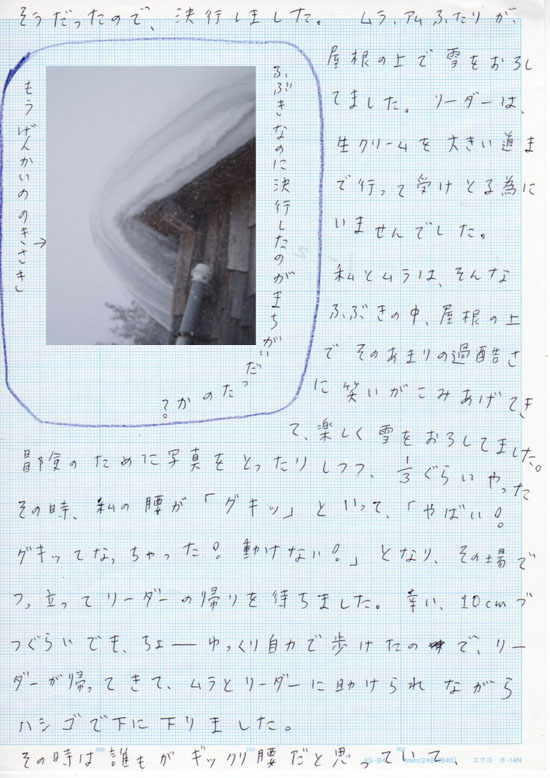 そうだったので、決行しました。 ムラ、アムふたりが、
屋根の上で雪をおろし
てました。 リーダーは、
生クリームを大きい道ま
で行って受けとる為に
いませんでした。
私とムラは、そんな
ふぶきの中、屋根の上
で そのあまりの過酷さ
に 笑いがこみあげてき
て、楽しく 雪をおろしてました。
ふぶきなのに決行したのがまちがいだったのか?
もうげんかいののきさき→
冒険のために写真をとったりしつつ、1/3ぐらいやった
その時、私の腰が「グキッ」といって、「やばい!
グキッてなっちゃった! 動けない!」となり、その場で
つっ立ってリーダーの帰りを待ちました。 幸い、10cmづ
つぐらいでも、ちょーゆっくり自力で歩けたので、リー
ダーが帰ってきて、ムラとリーダーに助けられながら
ハシゴで下に下りました。
その時は誰もがギックリ腰だと思っていて、
コクヨ ホ-14N